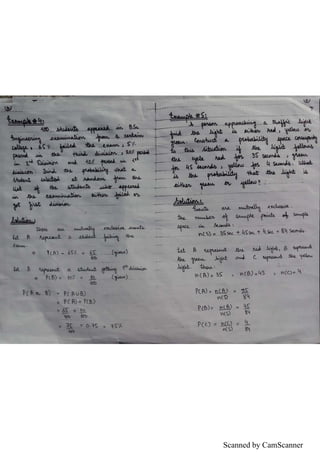 Example # 4:
400 students appeared in BSc
Engineering examination from a certain
college, 65% failed the exam, 5%
passed in the third division, 20% passed
in 2nd division and 10% passed in 1st
division. Find the probability that a
student selected at random from the
list of the students who appeared
in the examination either failed or
got first division.
Solution:
These are mutually exclusive events
Let A represent a student failing the
exam
P(A) = 65% = 65/100 (given)
Let B represent a student getting 1st division
P(B) = 10% = 10/100 (given)
P(A or B) = P(A∪B)
= P(A) + P(B)
= 65/100 + 10/100
= 75/100 = 0.75 = 75%
Example # 5:
A person approaching a traffic light
find the light is either red, yellow or
green. Construct a probability space
to this situation if the light follows
the cycle red for 35 seconds, green
for 45 seconds, yellow for 4 seconds. What
is the probability that the light is
either green or yellow?
Solution:
Events are mutually exclusive
The number of sample points of sample
space in seconds:
n(S) = 35 sec + 45 sec + 4 sec = 84 seconds
Let A represent the red light, B represent
the green light and C represent the yellow
light. Then
n(A) = 35, n(B) = 45, n(C) = 4
P(A) = n(A)/n(S) = 35/84
P(B) = n(B)/n(S) = 45/84
P(C) = n(C)/n(S) = 4/84
Scanned by CamScanner